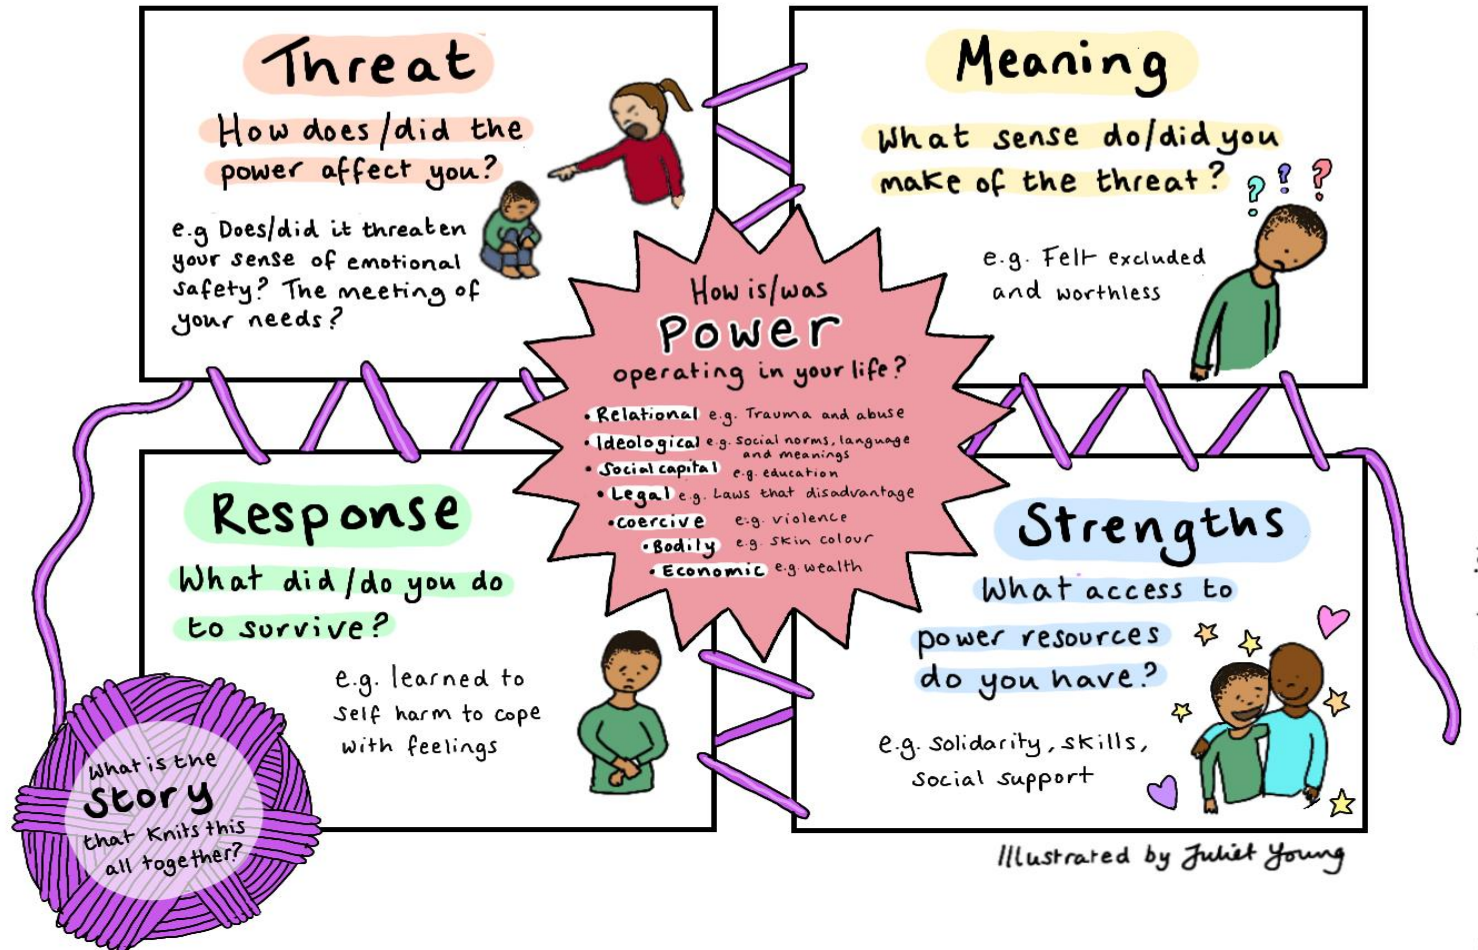 Threat
How does/did the
power affect you?
e.g Does/did it threaten
your sense of emotional
safety? The meeting of
your needs?
Meaning
What sense do/did you
make of the threat?
? ? ?
e.g. Felt excluded
and worthless
How is/was
Power
operating in your life?
• Relational e.g. Trauma and abuse
• Ideological e.g. social norms, language
and meanings
• Social capital e.g. education
• Legal e.g. Laws that disadvantage
• coercive e.g. violence
• Bodily e.g. skin colour
• Economic e.g. wealth
Response
What did/do you do
to survive?
e.g. learned to
self harm to cope
with feelings
Strengths
What access to
power resources
do you have?
e.g. solidarity, skills,
social support
What is the
Story
that knits this
all together?
Illustrated by Juliet Young